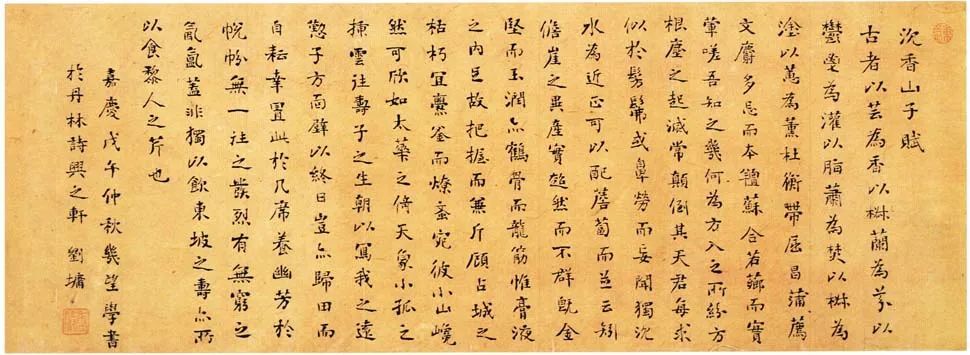 沉香山子賦
古者以芸為香以椒蘭為芬以
鬱鬯為灌以脂蕭為焚以椒為
塗以蕙為薰杜衡帶屈昌蒲薦
文麝多忌而本羶蘇合若薌而實
葷嗟吾知之幾何為六入之所紛方
根塵之起滅常顛倒其天君每求
似於髣髴或鼻勞而妄聞獨沉
水為近正可以配薝蔔而並云矧
儋崖之異產實超然而不群既金
堅而玉潤亦鶴骨而龍筋惟膏液
之內足故把握而兼斤顧占城之
枯朽宜爨釜而燎蚊宛彼小山巉
然可欣如太華之倚天象小孤之
插雲往壽子之生朝以寫我之遠
懃子方面壁以終日豈亦歸田而
自耘幸置此於几席養幽芳於
帨帉無一往之發烈有無窮之
氤氳蓋非獨以飲東坡之壽亦所
以食黎人之芹也
嘉慶戊午仲秋幾望學書
於丹林詩興之軒 劉墉